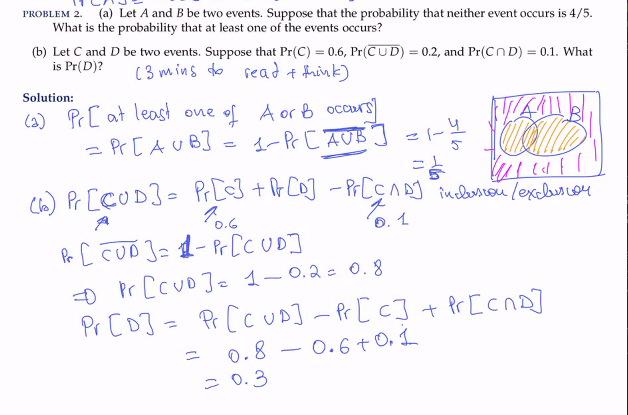 PROBLEM 2. (a) Let A and B be two events. Suppose that the probability that neither event occurs is 4/5.
What is the probability that at least one of the events occurs?
(b) Let C and D be two events. Suppose that Pr(C) = 0.6, Pr(C̅ ̅∪̅ ̅D̅) = 0.2, and Pr(C ∩ D) = 0.1. What
is Pr(D)?
(3 mins to read + think)
Solution:
(a) Pr[at least one of A or B occurs]
= Pr[A ∪ B] = 1 - Pr[A̅∪̅B̅] = 1 - 4/5
= 1/5
A B
(b) Pr[C∪D] = Pr[C] + Pr[D] - Pr[C∩D] inclusion/exclusion
0.6 0.1
Pr[C̅∪̅D̅] = 1 - Pr[C∪D]
⇒ Pr[C∪D] = 1 - 0.2 = 0.8
Pr[D] = Pr[C∪D] - Pr[C] + Pr[C∩D]
= 0.8 - 0.6 + 0.1
= 0.3